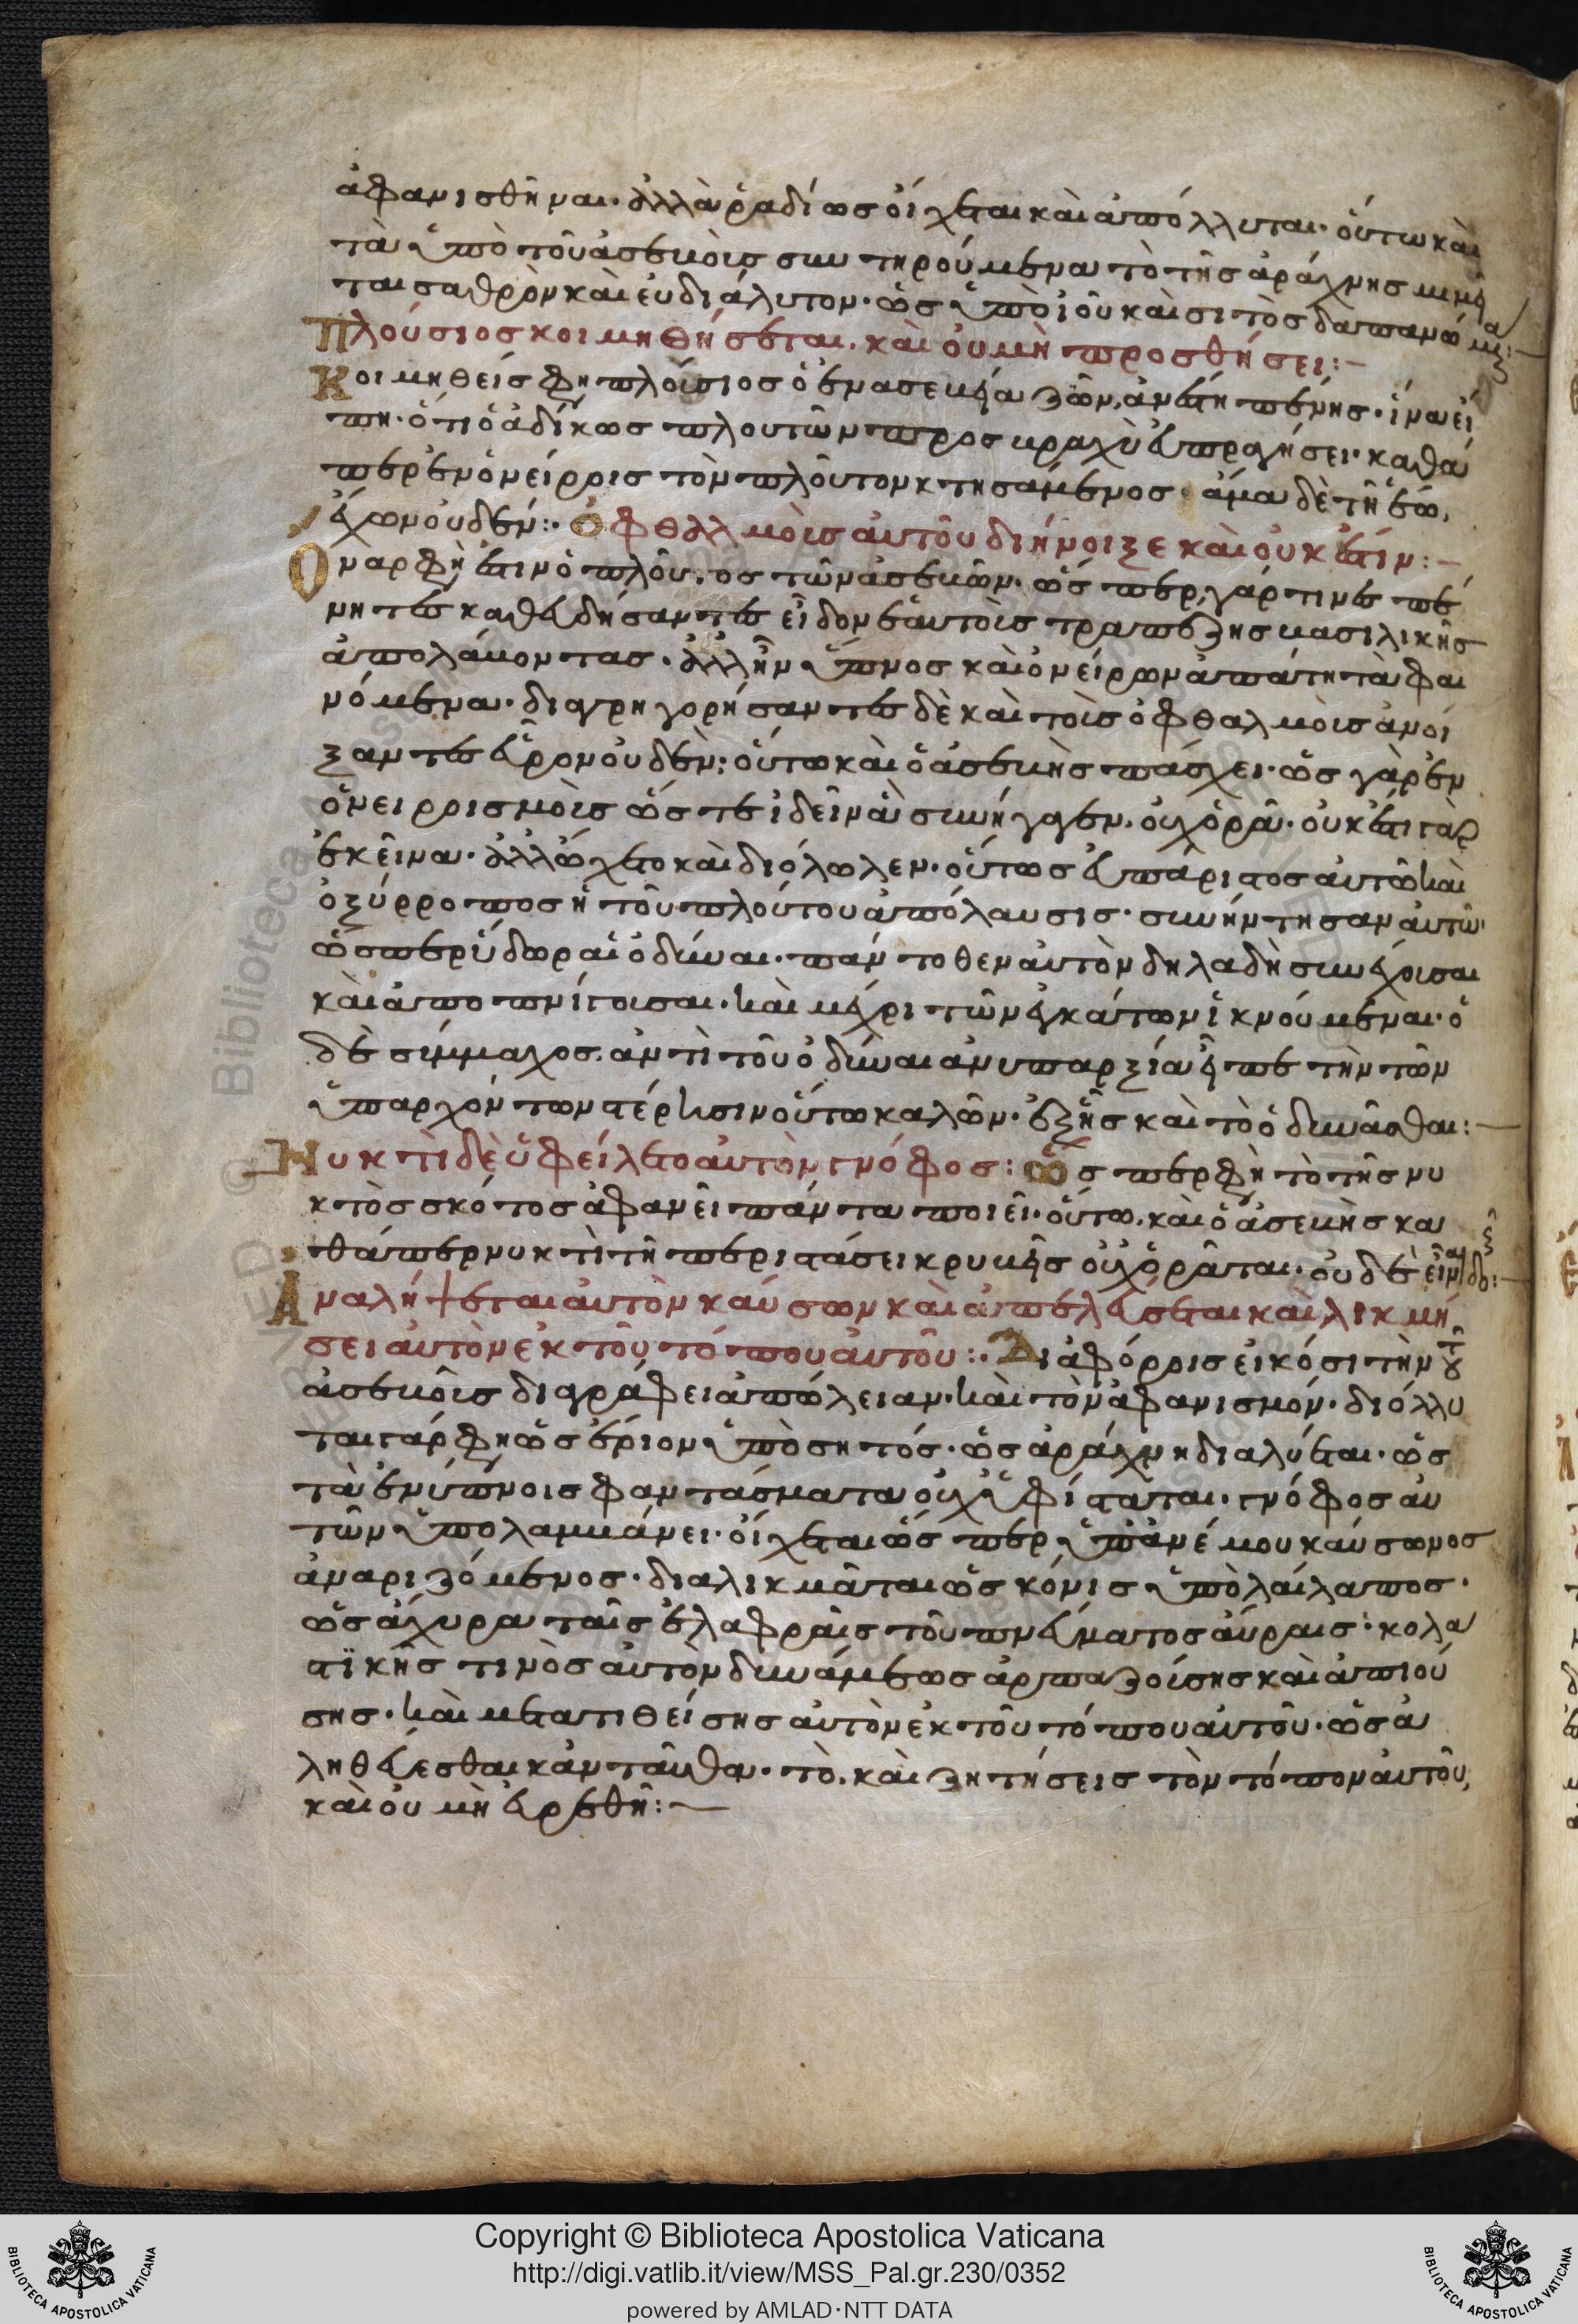 ἀφανισθῆναι· ἀλλὰ ῥαδίως οἴχεται καὶ ἀπόλλυται· οὕτω καὶ
τὰ ὑπὸ τοῦ ἀσεβοῖς συντηρούμενα τὸ τῆς ἀράχνης μιμεῖ
ται σαθρὸν καὶ εὐδιάλυτον· ὡς ὑπὸ ἰοῦ καὶ σιτὸς δαπανώμ
Πλούσιος κοιμηθήσεται. καὶ οὐ μὴ προσθήσει:
Κοιμηθεὶς φη πλούσιος ὁ ἐν ἀσεβείᾳ ζῶν, ἀνέστη πένης· ἵνα εἴ
πη· ὅτι ὁ ἀδίκως πλουτῶν προς βραχὺ εὐπραγήσει· καθά
περ ἐν ὀνείροις τὸν πλοῦτον κτησάμενος· ἅμα δὲ τῇ ἕῳ,
ἔχων οὐδέν:· Ὀφθαλμοῖς αὐτοῦ διήνοιξε καὶ οὐκ ἔστιν:
Ὄναρ φη ἔστιν ὁ πλοῦτος τῶν ἀσεβῶν. ὥσπερ γάρ τινες πέ
νητες καθευδήσαντες εἶδον ἑαυτοὺς τραπέζης βασιλικῆς
ἀπολάβοντας. ἀλλ' ἦν ὕπνος καὶ ὀνείρων ἀπάτη τὰ φαι
νόμενα· διαγρηγορήσαντες δὲ καὶ τοῖς ὀφθαλμοῖς ἀνοί
ξαντες εὗρον οὐδέν: οὕτω καὶ ὁ ἀσεβὴς πάσχει· ὡς γὰρ ἐν
ὀνειροισμοῖς ὥστε ἰδεῖν ἃ συνήγαγεν. οὐχ ὁρᾷ. οὐκ ἔστι γὰρ
ἐκεῖνα. ἀλλ' ᾤχετο καὶ διόλωλεν. οὕτως εὐπερίστος αὐτῷ καὶ
ὀξύρροπος ἡ τοῦ πλούτου ἀπόλαυσις. συνήντησαν αὐτῷ
ὥσπερ ὕδωρ αἱ ὀδύναι. πάντοθεν αὐτὸν δηλαδὴ συνέχουσαι
καὶ ἀποπνίγουσαι. καὶ μέχρι τῶν ἐγκάτων ἱκνούμεναι. ὁ
δὲ σύμμαχος. ἀντὶ τοῦ ὀδύναι ἀνυπαρξία εἶπε τὴν τῶν
ὑπαρχόντων στέρησιν οὕτω καλῶν. ἐξ ἧς καὶ τὸ ὀδυνᾶσθαι:
Νυκτὶ δὲ ὑφείλετο αὐτὸν γνόφος: Ὥσπερ φη τὸ τῆς νυ
κτὸς σκότος ἀφανεῖ πάντα ποιεῖ. οὕτω. καὶ ὁ ἀσεβὴς κα
θάπερ νυκτὶ τῇ περιστάσει κρυβεὶς οὐχ ὁρᾶται. οὐδὲ
Ἀναλήψεται αὐτὸν καύσων καὶ ἀπελεύσεται καὶ λικμή
σει αὐτὸν ἐκ τοῦ τόπου αὐτοῦ:· Διαφόροις εἰκόσι τὴν τοῦ
ἀσεβοῦς διαγράφει ἀπώλειαν. καὶ τὸν ἀφανισμόν. διόλλυ
ται γάρ φη ὡς ἔριον ὑπὸ σητός. ὡς ἀράχνη διαλύεται. ὡς
τὰ ἐν ὕπνοις φαντάσματα οὐχ ὑφίσταται. γνόφος αὐ
τὸν ὑπολαμβάνει. οἴχεται ὥσπερ ὑπ' ἀνέμου καύσωνος
ἀναριζόμενος. διαλικμᾶται ὡς κόνις ὑπὸ λαίλαπος.
ὡς ἄχυρα ταῖς ἐλαφραῖς τοῦ πνεύματος αὔραις. κολα
στϊκῆς τινὸς αὐτὸν δυνάμεως ἁρπαζούσης καὶ ἀπιού
σης. καὶ μετατιθείσης αὐτὸν ἐκ τοῦ τόπου αὐτοῦ. ὡς ἀ
ληθεύεσθαι κἀνταῦθα. τὸ. καὶ ζητήσεις τὸν τόπον αὐτοῦ,
καὶ οὐ μὴ εὑρεθῇ:
Copyright © Biblioteca Apostolica Vaticana
http://digi.vatlib.it/view/MSS_Pal.gr.230/0352
powered by AMLAD·NTT DATA
BIBLIOTECA APOSTOLICA VATICANA
BIBLIOTECA APOSTOLICA VATICANA